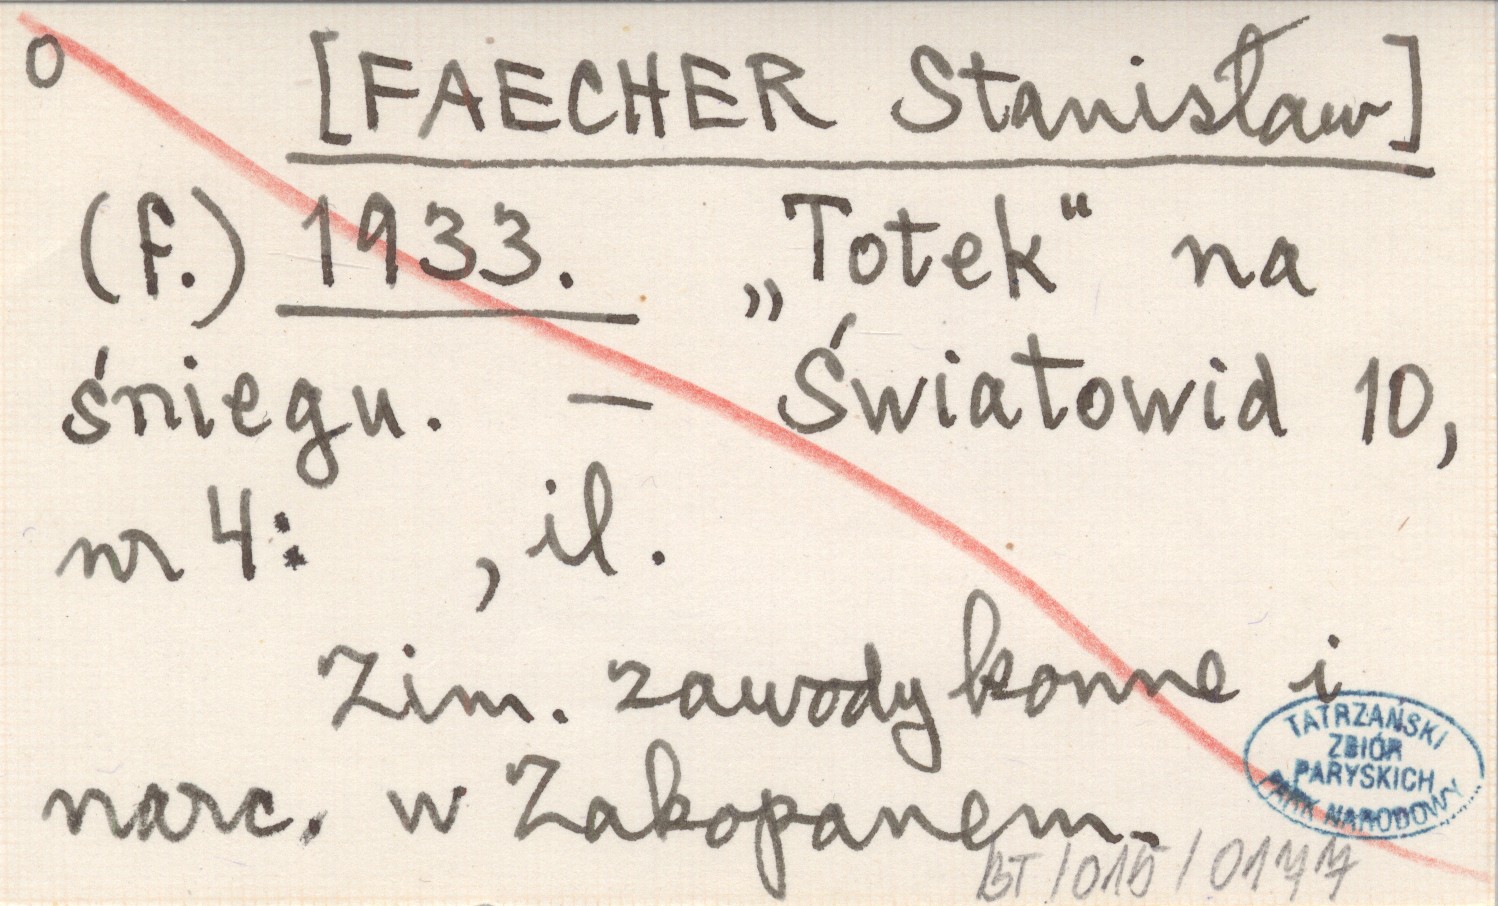 O
[FAECHER Stanisław]
(f.) 1933. „Totek“ na
śniegu. — Światowid 10,
nr 4: , il.
Zim. zawody konne i
narc. w Zakopanem.
TATRZAŃSKI
ZBIÓR
PARYSKICH
PARK NARODOWY
BT/015/0177